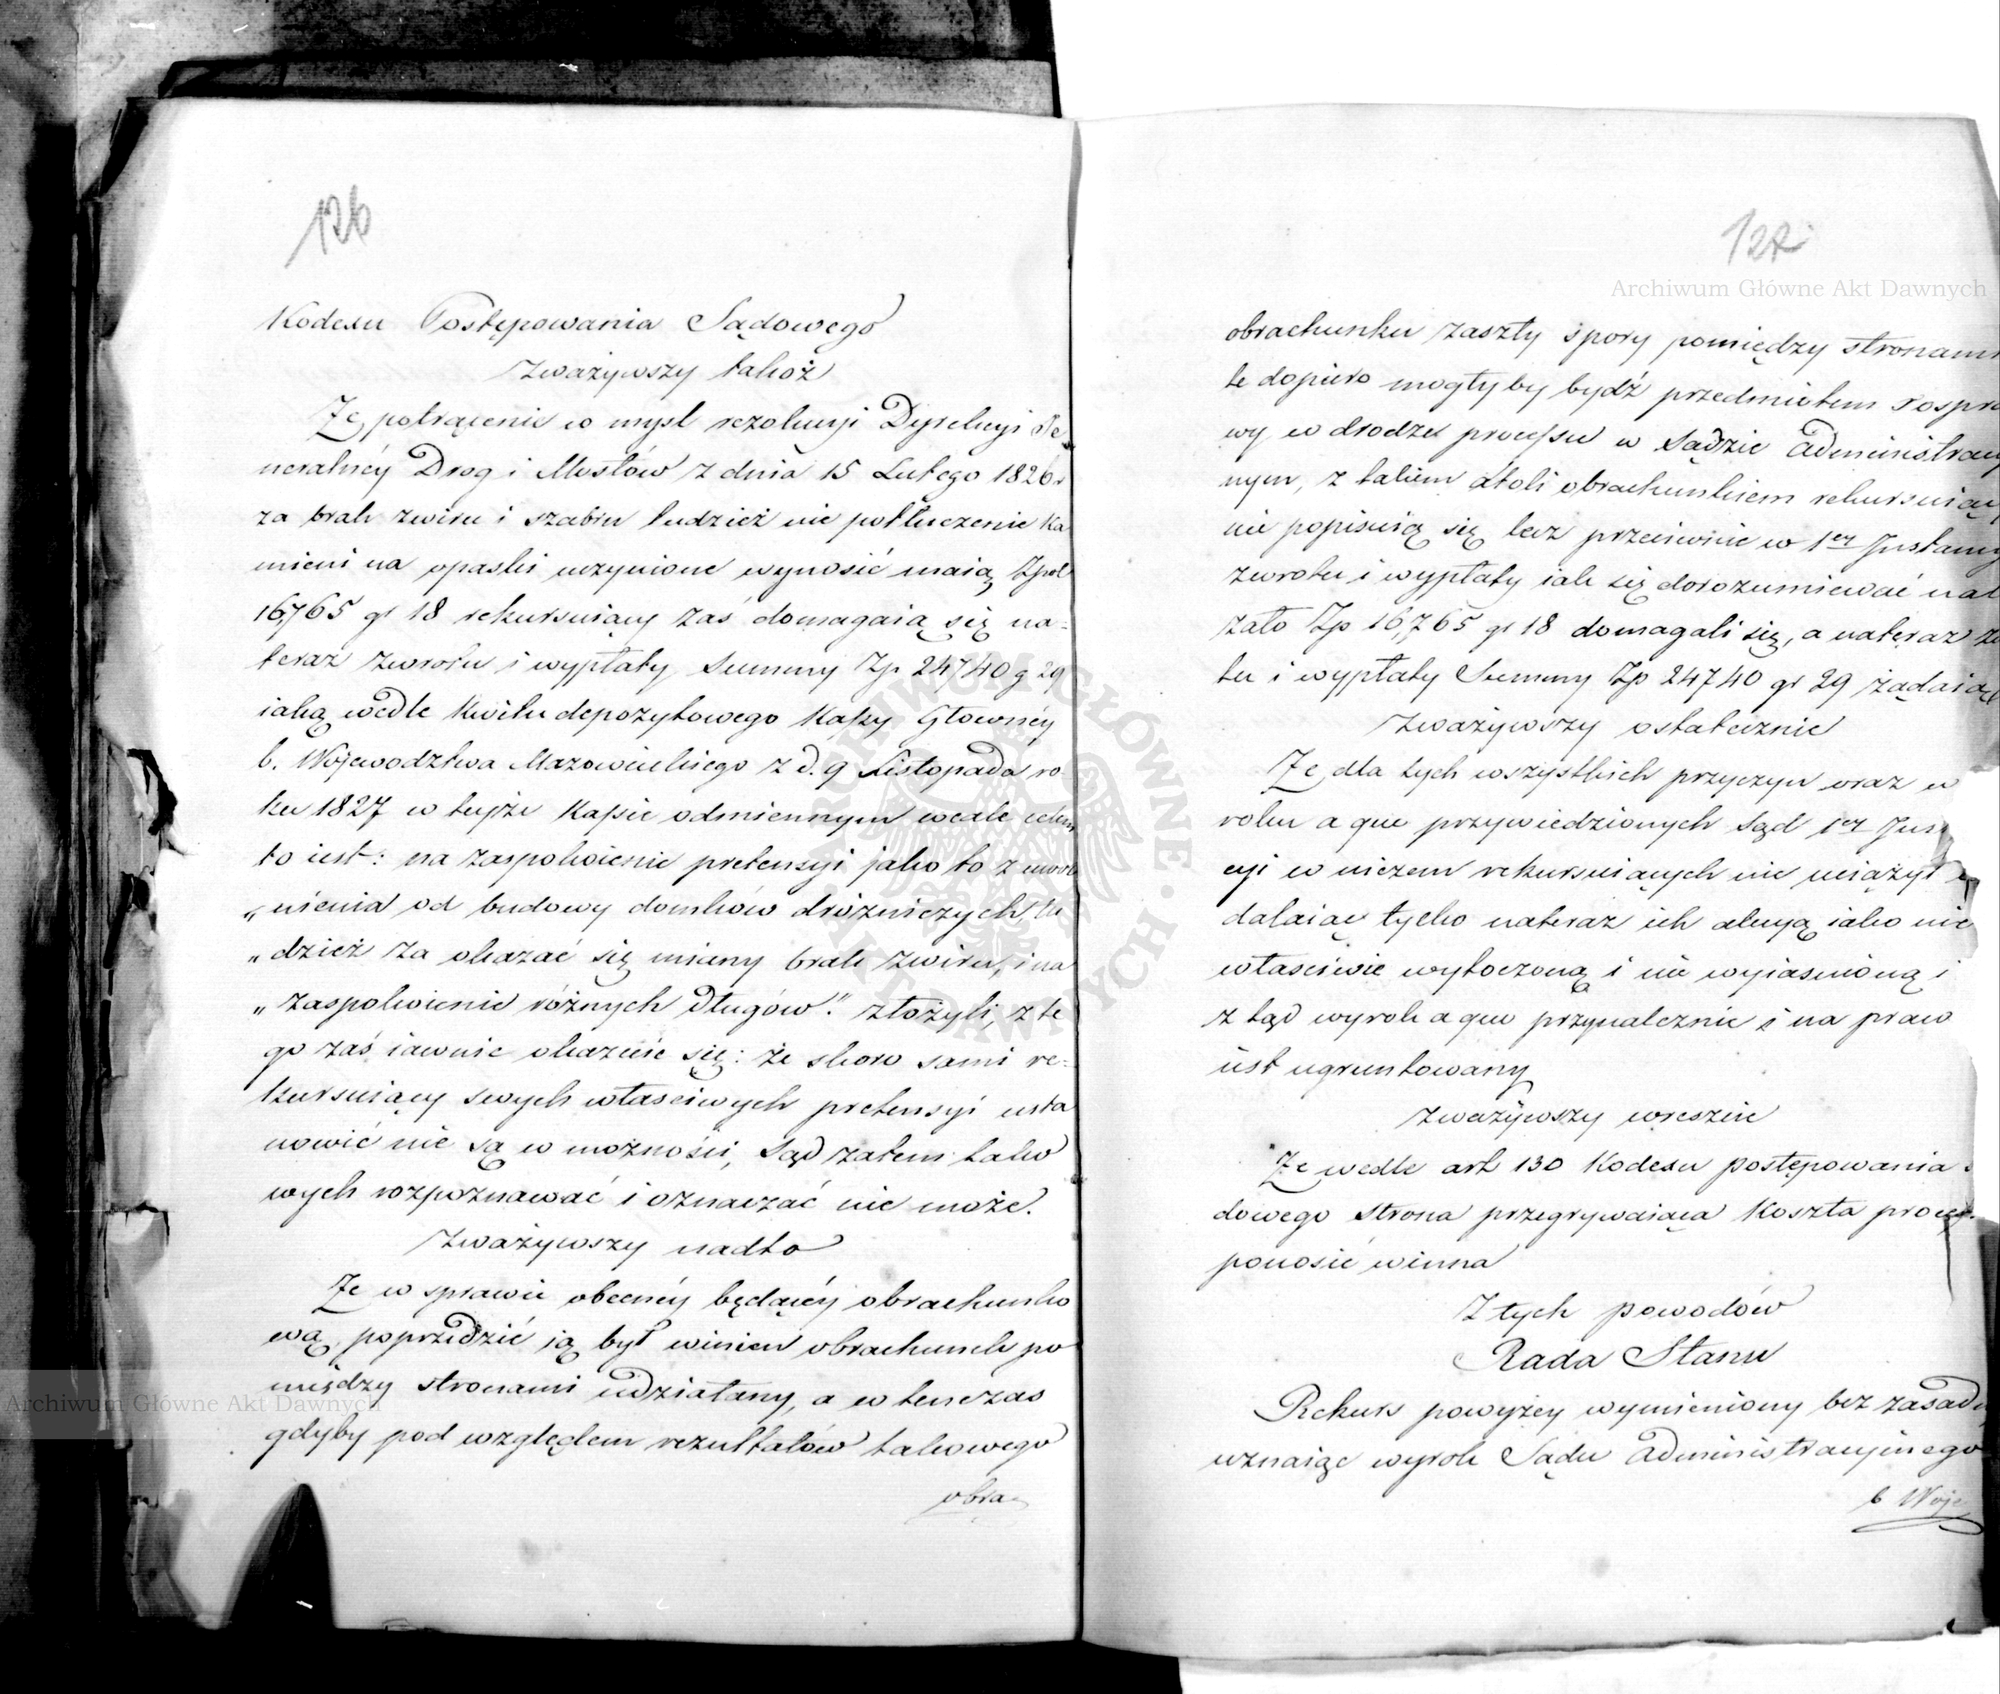 126
Kodexu Postępowania Sądowego
Zważywszy takoż
Że potrącenie w myśl rezolucyi Dyrekcyi Je
neralnéy Drog i Mostów z dnia 15 Lutego 1826 r
za brak żwiru i szabru tudzież nie potłuczenie ka
mieni na opaski uczynione wynosić maią Zpol
16,765 gr 18 rekursuiący zaś domagaią się na-
teraz zwrotu i wypłaty Summy Zp 24740 g 29
iaką wedle kwitu depozytowego Kassy Głownéy
b. Województwa Mazowieckiego z d. 9 Listopada ro
ku 1827 w teyże Kassie odmiennym wcale celem
to iest: na zaspokoienie pretensyi jako to z uwol
„nienia od budowy domków dróżniczych, tu
„dzież za okazać się miany brak żwiru, i na
„zaspokoienie różnych długów." złożyli, z te
go zaś iawnie okazuie się: że skoro sami re-
kursuiący swych właściwych pretensyi usta
nowić nie są w możności, Sąd zatem tako
wych rozpoznawać i oznaczać nie może.
Zważywszy nadto
Że w sprawie obecnéy będącéy obrachunko
wą, poprzedzić ją był winien obrachunek po
między stronami udziałany, a w ten czas
gdyby pod względem rezultatów takowego
obra-
127
Archiwum Główne Akt Dawnych
obrachunku zaszły spory pomiędzy stronami
te dopiero mogłyby bydź przedmiotem rospra
wy w drodze processu w Sądzie Administracy
nym, z takiem atoli obrachunkiem rekursuiący
nie popisuią się lecz przeciwnie w 1ey Instancy
zwrotu i wypłaty iak się dorozumiewać nale
żało Zp 16,765 gr 18 domagali się, a nateraz zwro
tu i wypłaty Summy Zp 24740 gr 29 żądaią
Zważywszy ostatecznie
Że dla tych wszystkich przyczyn oraz w
roku a quo przywiedzionych Sąd 1ey Ins
cyi w niczem rekursuiących nie uciążył
dalaiąc tylko nateraz ich akcyą iako nie
właściwie wytoczoną i nie wyiaśnioną i
z tąd wyrok a quo przynależnie i na praw
iest ugruntowany
Zważywszy wreszcie
Że wedle art 130 Kodexu postępowania
dowego strona przegrywaiąca koszta proces
ponosić winna
Z tych powodów
Rada Stanu
Rekurs powyżey wymieniony bez zasadu
uznaiąc wyrok Sądu Administracyinego
b Woje
Archiwum Główne Akt Dawnych
ARCHIWUM GŁÓWNE AKT DAWNYCH